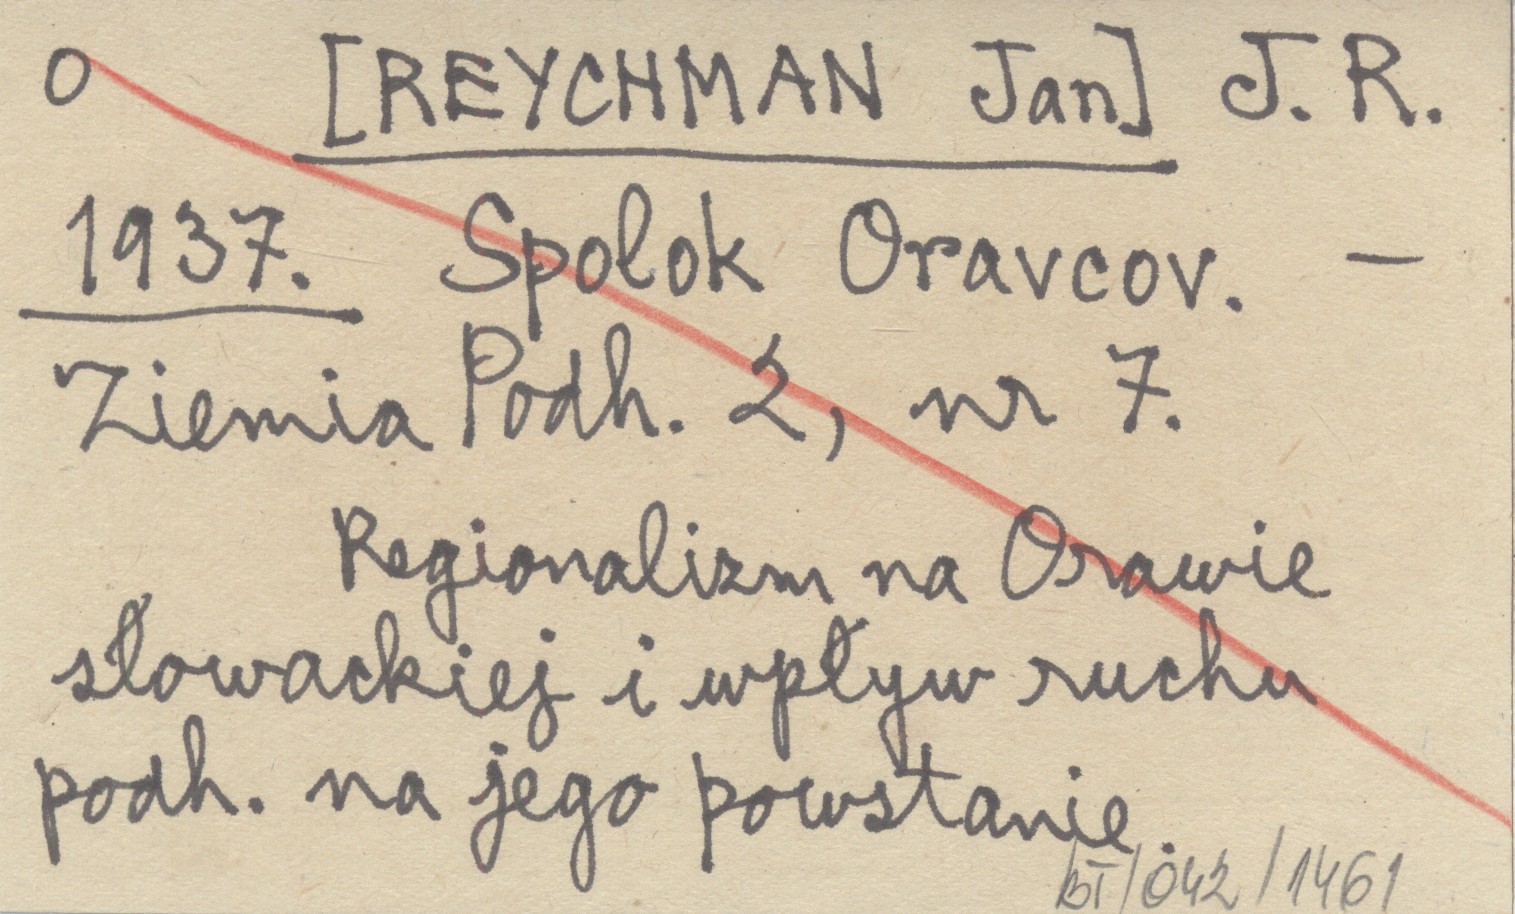 O [REYCHMAN Jan] J. R.
1937. Spolok Oravcov. —
Ziemia Podh. 2, nr 7.
Regionalizm na Orawie
słowackiej i wpływ ruchu
podh. na jego powstanie.
BT/042/1461